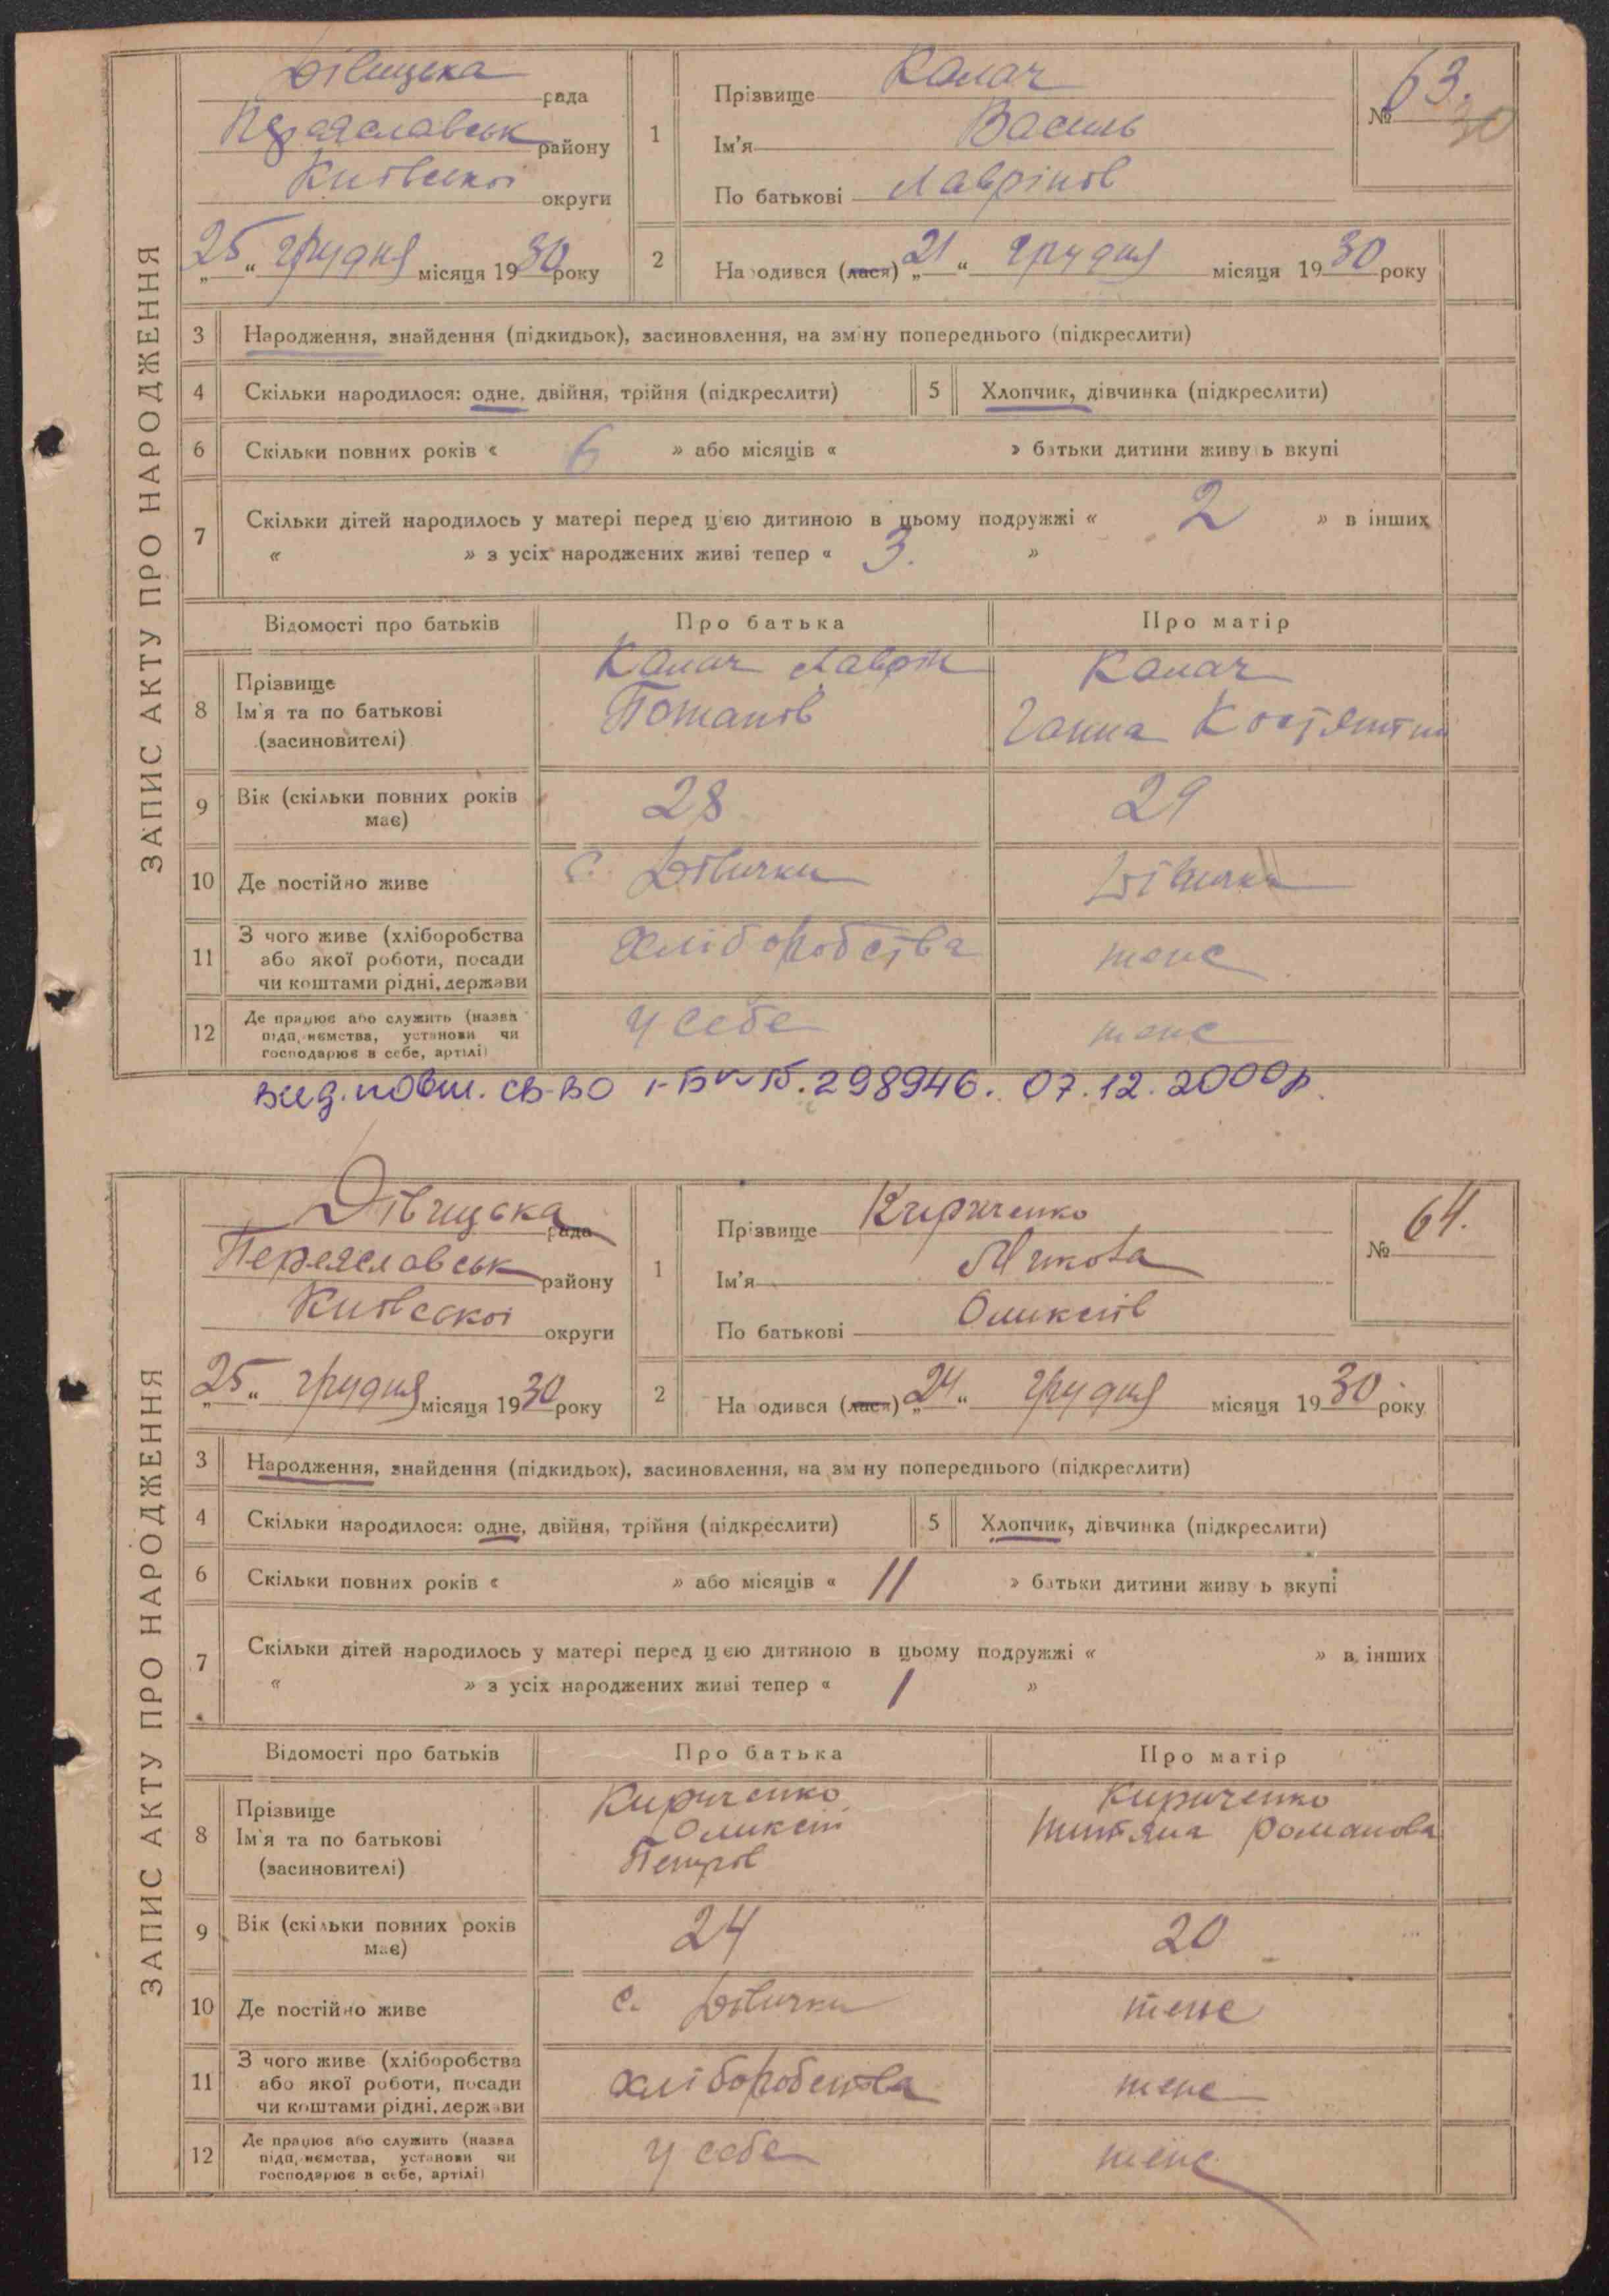 ЗАПИС АКТУ ПРО НАРОДЖЕННЯ
Дівицька рада
Переяславськ району
Київської округи
„25“ грудня місяця 1930 року
1
Прізвище Калач
Ім'я Василь
По батькові Лаврінов
№ 63.
30
2
Народився (лася) „21“ грудня місяця 1930 року
3 Народження, знайдення (підкидьок), засиновлення, на зміну попереднього (підкреслити)
4 Скільки народилося: одне, двійня, трійня (підкреслити) 5 Хлопчик, дівчинка (підкреслити)
6 Скільки повних років « 6 » або місяців « » батьки дитини живуть вкупі
7 Скільки дітей народилось у матері перед цією дитиною в цьому подружжі « 2 » в інших
« » з усіх народжених живі тепер « 3. »
Відомості про батьків Про батька Про матір
8 Прізвище Ім'я та по батькові (засиновителі) Калач Потапов Калач Ганна
9 Вік (скільки повних років має) 28 29
10 Де постійно живе с. Дівички Дівички
11 З чого живе (хліборобства або якої роботи, посади чи коштами рідні, держави хліборобства теж
12 Де працює або служить (назва підприємства, установи чи господарює в себе, артілі) у себе теж
вид. повт. св-во 298946. 07.12.2000р.
ЗАПИС АКТУ ПРО НАРОДЖЕННЯ
Дівицька рада
Переяславськ району
Київської округи
„25“ грудня місяця 1930 року
1
Прізвище Кириченко
Ім'я Микола
По батькові Олексіів
№ 64.
2
Народився (лася) „24“ грудня місяця 1930 року
3 Народження, знайдення (підкидьок), засиновлення, на зміну попереднього (підкреслити)
4 Скільки народилося: одне, двійня, трійня (підкреслити) 5 Хлопчик, дівчинка (підкреслити)
6 Скільки повних років « » або місяців « 11 » батьки дитини живуть вкупі
7 Скільки дітей народилось у матері перед цією дитиною в цьому подружжі « » в інших
« » з усіх народжених живі тепер « 1 »
Відомості про батьків Про батька Про матір
8 Прізвище Ім'я та по батькові (засиновителі) Кириченко Петров Кириченко Романова
9 Вік (скільки повних років має) 24 20
10 Де постійно живе с. Дівички теж
11 З чого живе (хліборобства або якої роботи, посади чи коштами рідні, держави хліборобства теж
12 Де працює або служить (назва підприємства, установи чи господарює в себе, артілі) у себе теж